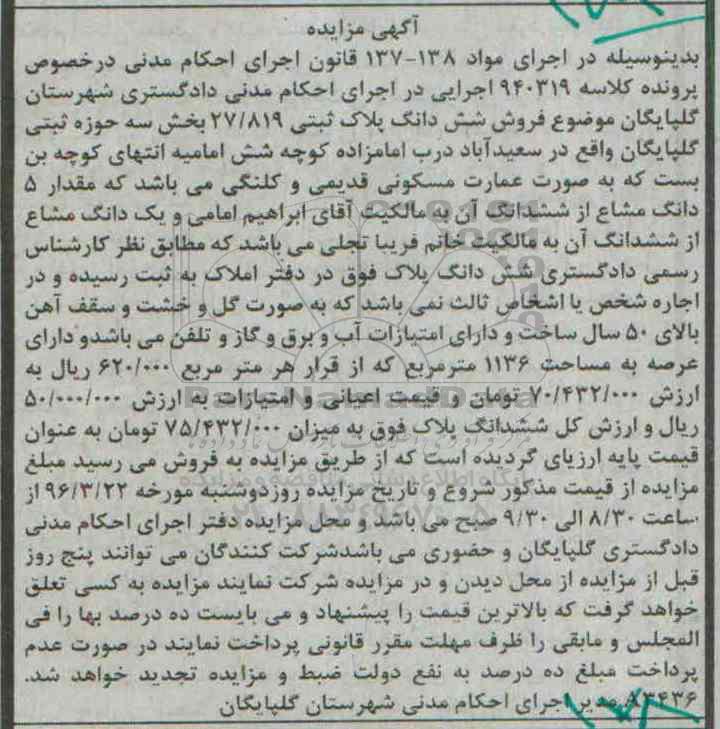 آگهی مزایده
بدینوسیله در اجرای مواد ۱۳۸-۱۳۷ قانون اجرای احکام مدنی درخصوص
پرونده کلاسه ۹۴۰۳۱۹ اجرایی در اجرای احکام مدنی دادگستری شهرستان
گلپایگان موضوع فروش شش دانگ پلاک ثبتی ۲۷/۸۱۹ بخش سه حوزه ثبتی
گلپایگان واقع در سعیدآباد درب امامزاده کوچه شش امامیه انتهای کوچه بن
بست که به صورت عمارت مسکونی قدیمی و کلنگی می باشد که مقدار ۵
دانگ مشاع از ششدانگ آن به مالکیت آقای ابراهیم امامی و یک دانگ مشاع
از ششدانگ آن به مالکیت خانم فریبا تجلی می باشد که مطابق نظر کارشناس
رسمی دادگستری شش دانگ پلاک فوق در دفتر املاک به ثبت رسیده و در
اجاره شخص یا اشخاص ثالث نمی باشد که به صورت گل و خشت و سقف آهن
بالای ۵۰ سال ساخت و دارای امتیازات آب و برق و گاز و تلفن می باشدو دارای
عرصه به مساحت ۱۱۳۶ مترمربع که از قرار هر متر مربع ۶۲۰/۰۰۰ ریال به
ارزش ۷۰/۴۳۲/۰۰۰ تومان و قیمت اعیانی و امتیازات به ارزش ۵۰/۰۰۰/۰۰۰
ریال و ارزش کل ششدانگ پلاک فوق به میزان ۷۵/۴۳۲/۰۰۰ تومان به عنوان
قیمت پایه ارزیای گردیده است که از طریق مزایده به فروش می رسید مبلغ
مزایده از قیمت مذکور شروع و تاریخ مزایده روزدوشنبه مورخه ۹۶/۳/۲۲ از
ساعت ۸/۳۰ الی ۹/۳۰ صبح می باشد و محل مزایده دفتر اجرای احکام مدنی
دادگستری گلپایگان و حضوری می باشدشرکت کنندگان می توانند پنج روز
قبل از مزایده از محل دیدن و در مزایده شرکت نمایند مزایده به کسی تعلق
خواهد گرفت که بالاترین قیمت را پیشنهاد و می بایست ده درصد بها را فی
المجلس و مابقی را ظرف مهلت مقرر قانونی پرداخت نمایند در صورت عدم
پرداخت مبلغ ده درصد به نفع دولت ضبط و مزایده تجدید خواهد شد.
۸۳۴۳۶ مدیر اجرای احکام مدنی شهرستان گلپایگان